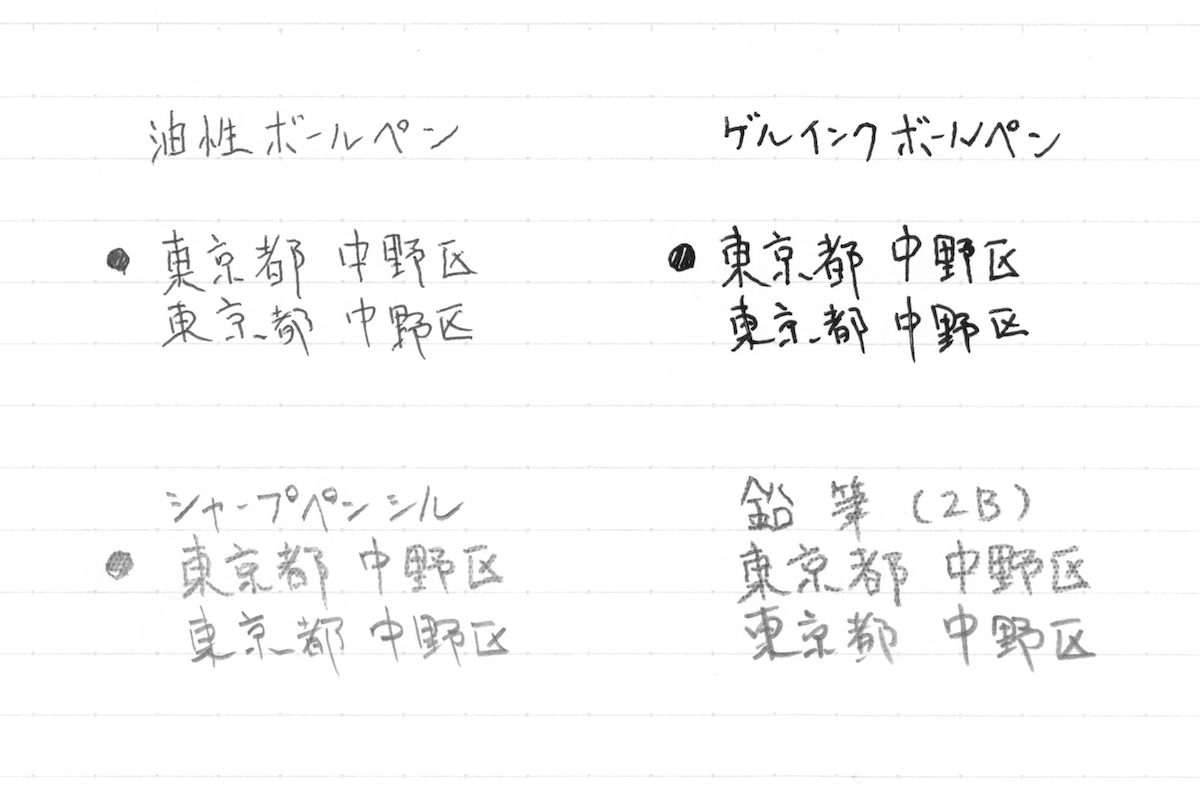 油性ボールペン
● 東京都 中野区
東京都 中野区
ゲルインクボールペン
● 東京都 中野区
東京都 中野区
シャープペンシル
● 東京都 中野区
東京都 中野区
鉛筆(2B)
東京都 中野区
東京都 中野区